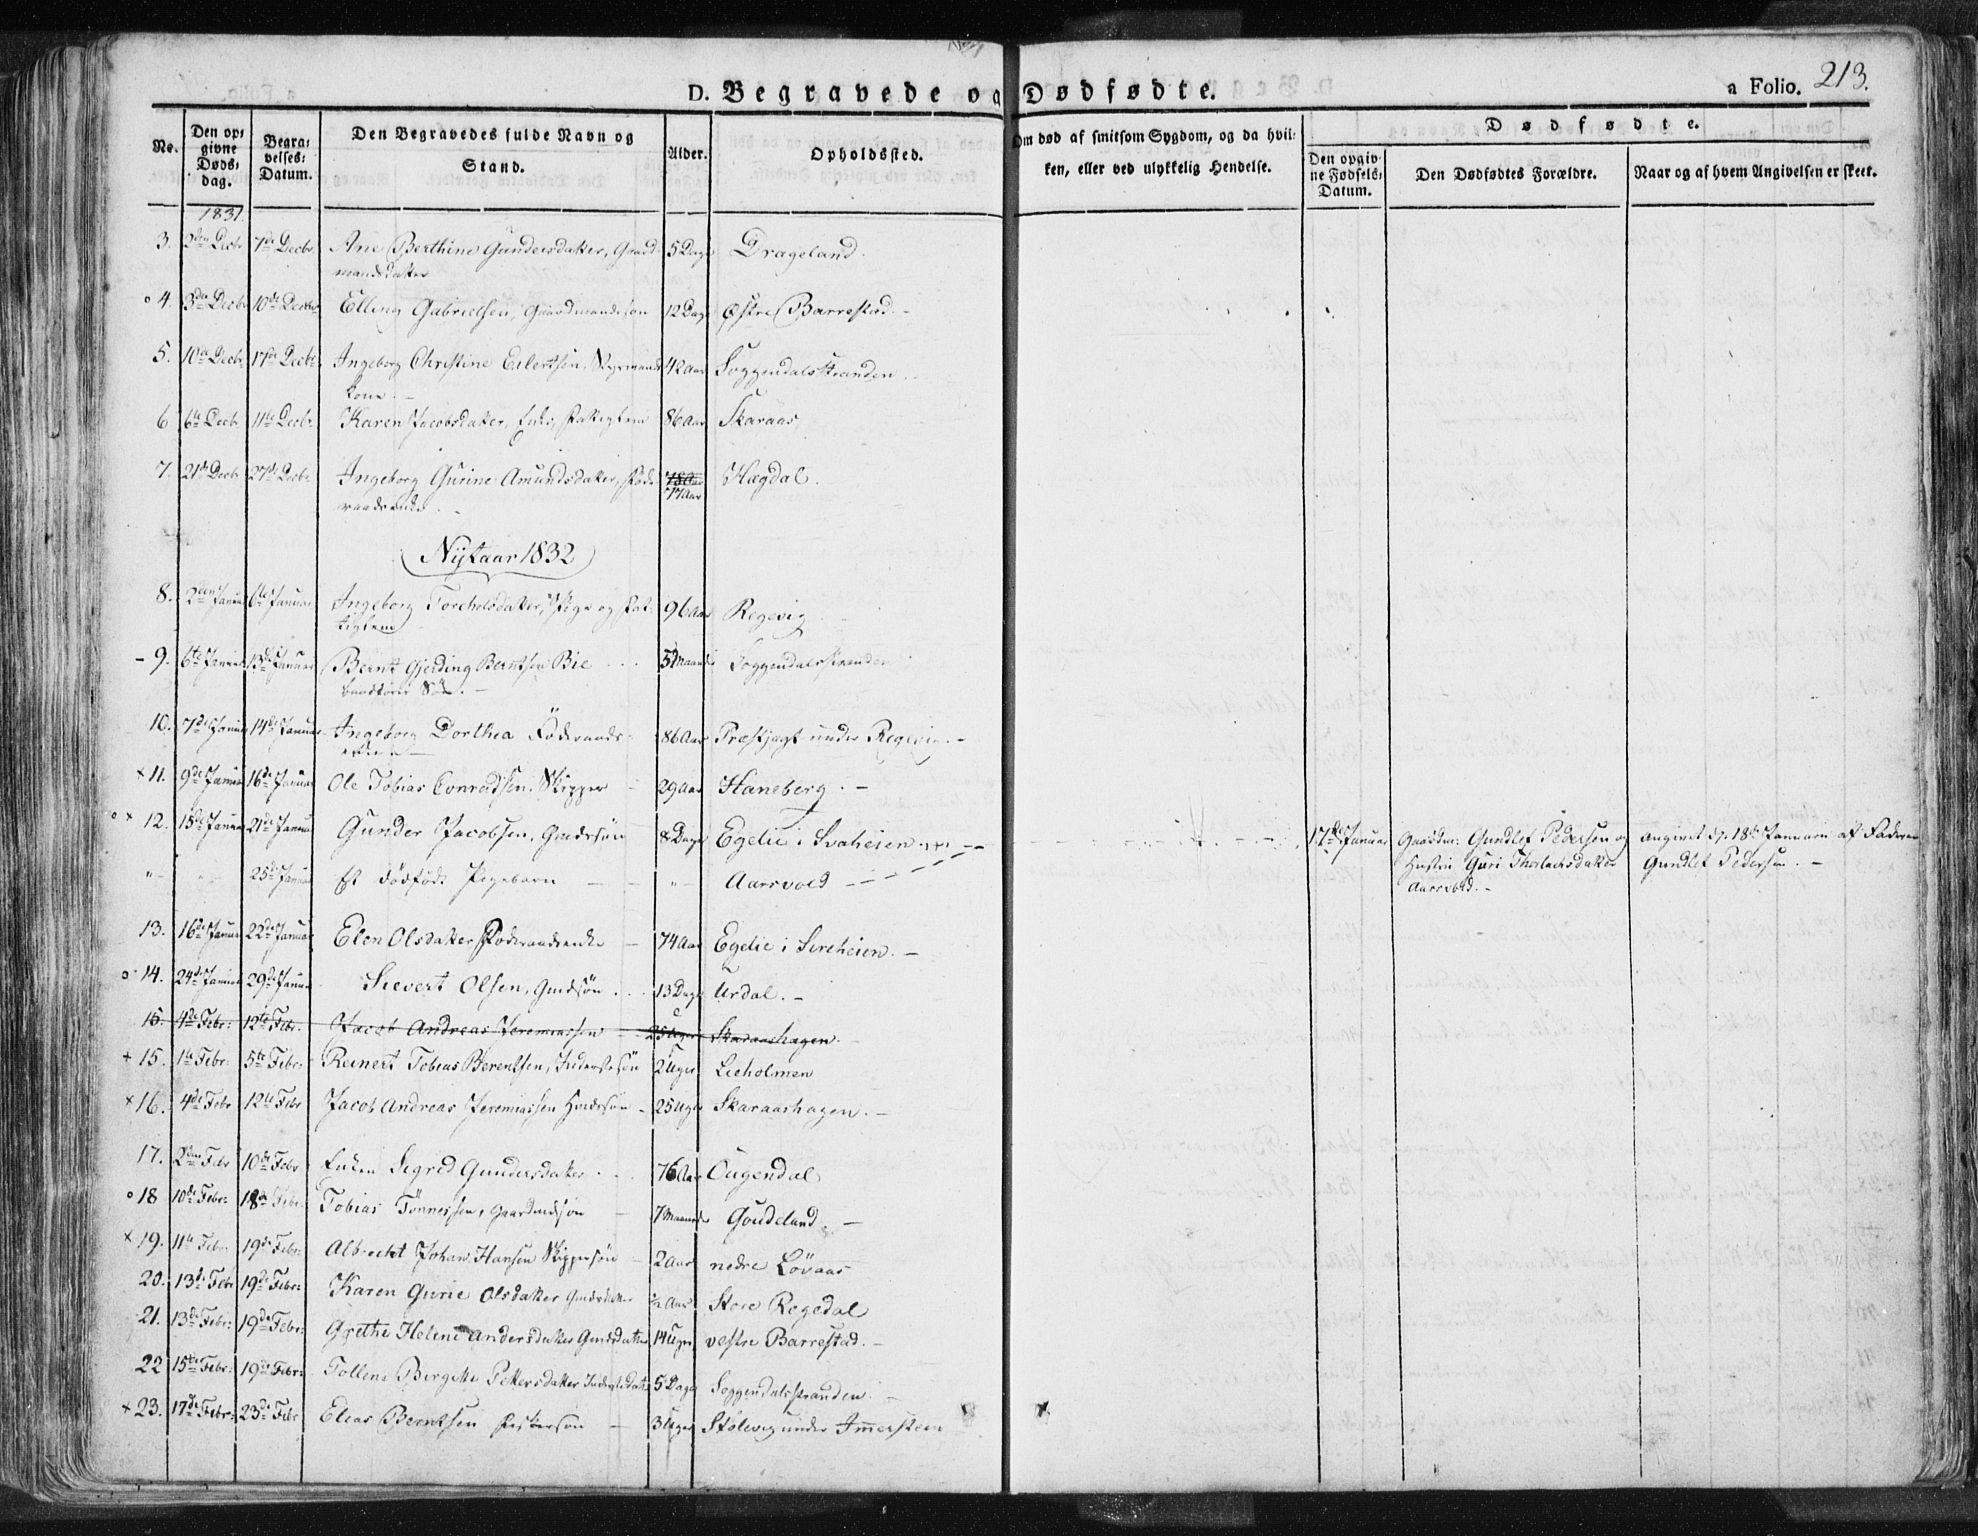 D. Begravede og Dødfødte.
a Folio. 213.
No.
Den opgivne Døds-dag.
Begravelses-Datum.
Den Begravedes fulde Navn og Stand.
Alder.
Opholdssted.
Om død af smitsom Sygdom, og da hvilken, eller ved ulykkelig Hendelse.
Dødfødte.
Den opgivne Fødsels-Datum.
Den Dødfødtes Forældre.
Naar og af hvem Angivelsen er skeet.
1831.
3. 2den Decbr 7de Decbr Ane Berthine Gundersdatter, Gaardmandsdatter 5 Dage Drageland.
4. 3die Decbr 10de Decbr Elling Gabrielsen, Gaardmandssøn 12 Dage Østre Barrestad.
5. 10de Decbr 17de Decbr Ingeborg Christine Eilertsen, Styrmands Kone. 42 Aar Soggendalsstranden.
6 6te Decbr 11te Decbr. Karen Jacobsdatter, Enke, Fattiglem 86 Aar Skaraas
7. 21de Decbr 27de Decbr. Ingeborg Gurine Amundsdatter, Føderaadsenke. 78 Aar 77 Aar Hægdal.
Nytaar 1832
8. 2den Januar 6te Januar Ingeborg Torchelsdatter, Pige og Fattiglem 96 Aar Regevig
9. 6te Januar 13de Januar Bernt Gjerding Berntsen Bie Søn. 5½ Maaneder Soggendalsstranden
10. 7de Januar 14de Januar Ingeborg Dorthea Föderaads- 86 Aar Præstjagt under Regevig.
× 11. 9de Januar 16de Januar Ole Tobias Conradsen. Skipper 29 Aar Haneberg.
o × 12. 15de Januar 21de Januar Gunder Jacobsen, Gmdssøn 8 Dage Egelie i Svaheien
" " 25de Januar Et dödfödt Pigebarn " Aarsvold 17de Januar Gaardm: Gundlef Pedersen og Hustru Guri Thorlachsdatter Aarsvold. Angivet d. 18de Januarii af Faderen Gundlef Pedersen.
13. 16de Januar 22de Januar Elen Olsdatter Föderaadsenke 74 Aar Egelie i Sireheien.
o 14. 24de Januar 29de Januar Sievert Olsen, Gmdssøn 13 Dage Urdal.
15. 4de Febr: 12te Febr. Jacob Andreas Jeremiassen 25 Uger Skaraashagen.
+ 15. 1te Febr: 5te Febr: Reinert Tobias Berentsen, Inderstesøn 2 Uger Lieholmen
× 16. 4de Febr 12te Febr Jacob Andreas Jeremiassen Hmdssøn 25 Uger Skaraashagen.
17. 2den Febr 10de Febr Enken Segred Gundersdatter 76 Aar Ougendal
o 18 10de Febr: 18de Febr: Tobias Tönnessen, Gaardmdssøn 7 Maaneder Goudeland.
× 19. 11te Febr. 19de Febr: Albrecht Johan Hansen Skippersøn 2 Aar nedre Lövaas
20. 13de Febr 19de Febr: Karen Gurie Olsdatter Gmdsdatter ½ Aar Store Regedal
21. 13de Febr: 19de Febr: Grethe Helene Andersdatter Gmdsdatter 14 Uger vestre Barrestad.
22 15de Febr: 19de Febr: Tollene Birgitte Pettersdatter Inderstedatter 5 Dage Soggendalsstranden.
+ 23. 17de Febr: 23de Febr Elias Berntsen 3 Uger Stölevig under Immersteen